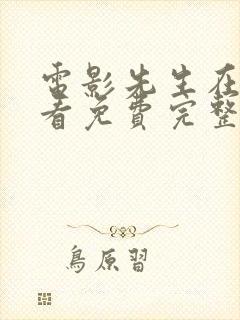 雷影先生在
看免费完整
鳥原習